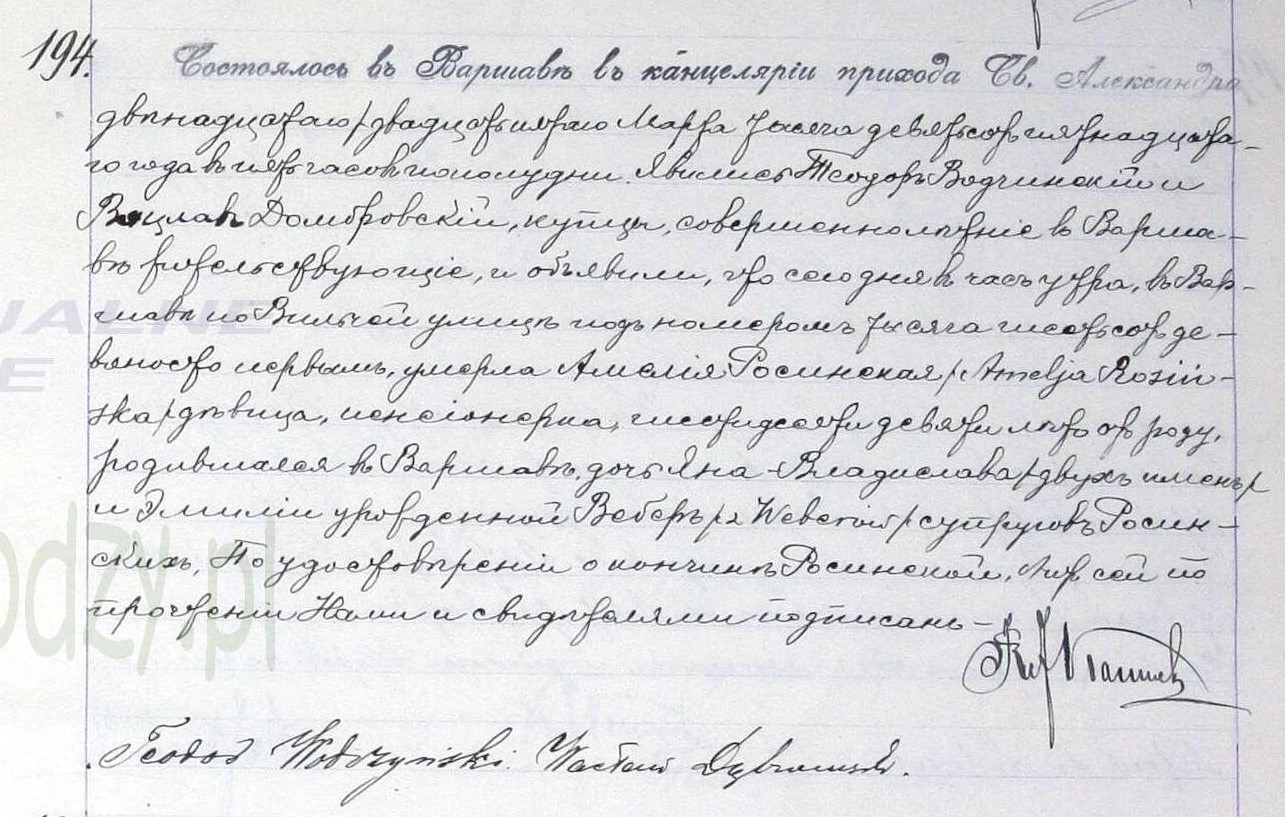 194.
Состоялось въ Варшавѣ въ канцеляріи прихода Св. Александра
двѣнадцатаго/двадцать пятаго Марта тысяча девятьсотъ пятнадцата-
го года въ пять часовъ пополудни. Явились Теодоръ Водчинскій и
Вацлавъ Домбровскій, купцы, совершеннолѣтніе въ Варша-
вѣ жительствующіе, и объявили, что сего дня въ часъ утра, въ Вар-
шавѣ по Вильчей улицѣ подъ номеромъ тысяча шестьсотъ де-
вяносто первымъ, умерла Амелія Росинская /Amelja Rosiń-
ska/ дѣвица, пенсіонерка, шестидесяти девяти лѣтъ отъ роду,
родившаяся въ Варшавѣ, дочь Яна-Владислава /двухъ именъ/
и Эмиліи урожденной Веберъ /z Weberów/ супруговъ Росин-
скихъ. По удостовѣреніи о кончинѣ Росинской, Актъ сей по
прочтеніи Нами и свидѣтелями подписанъ-
Teodor Wodczyński Wacław Dąbrowski.
UALNE
E
odzy.pl